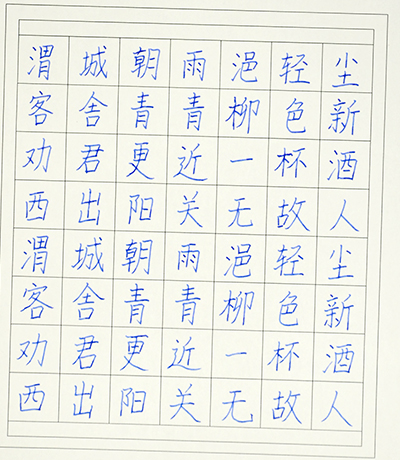 渭城朝雨浥轻尘
客舍青青柳色新
劝君更近一杯酒
西出阳关无故人
渭城朝雨浥轻尘
客舍青青柳色新
劝君更近一杯酒
西出阳关无故人